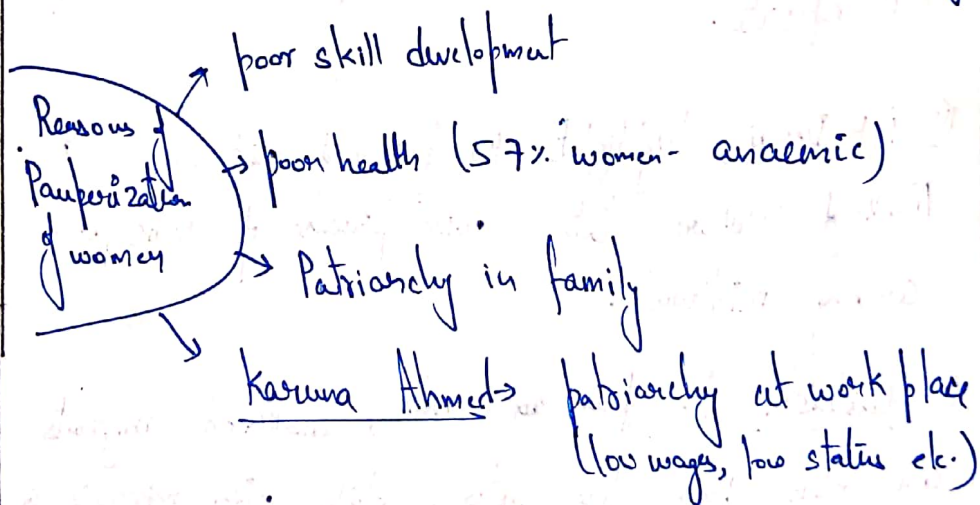 Reasons of
Pauperization
of women
poor skill development
poor health (57% women - anaemic)
Patriarchy in family
Karuna Ahmed → patriarchy at work place
(low wages, low status etc.)